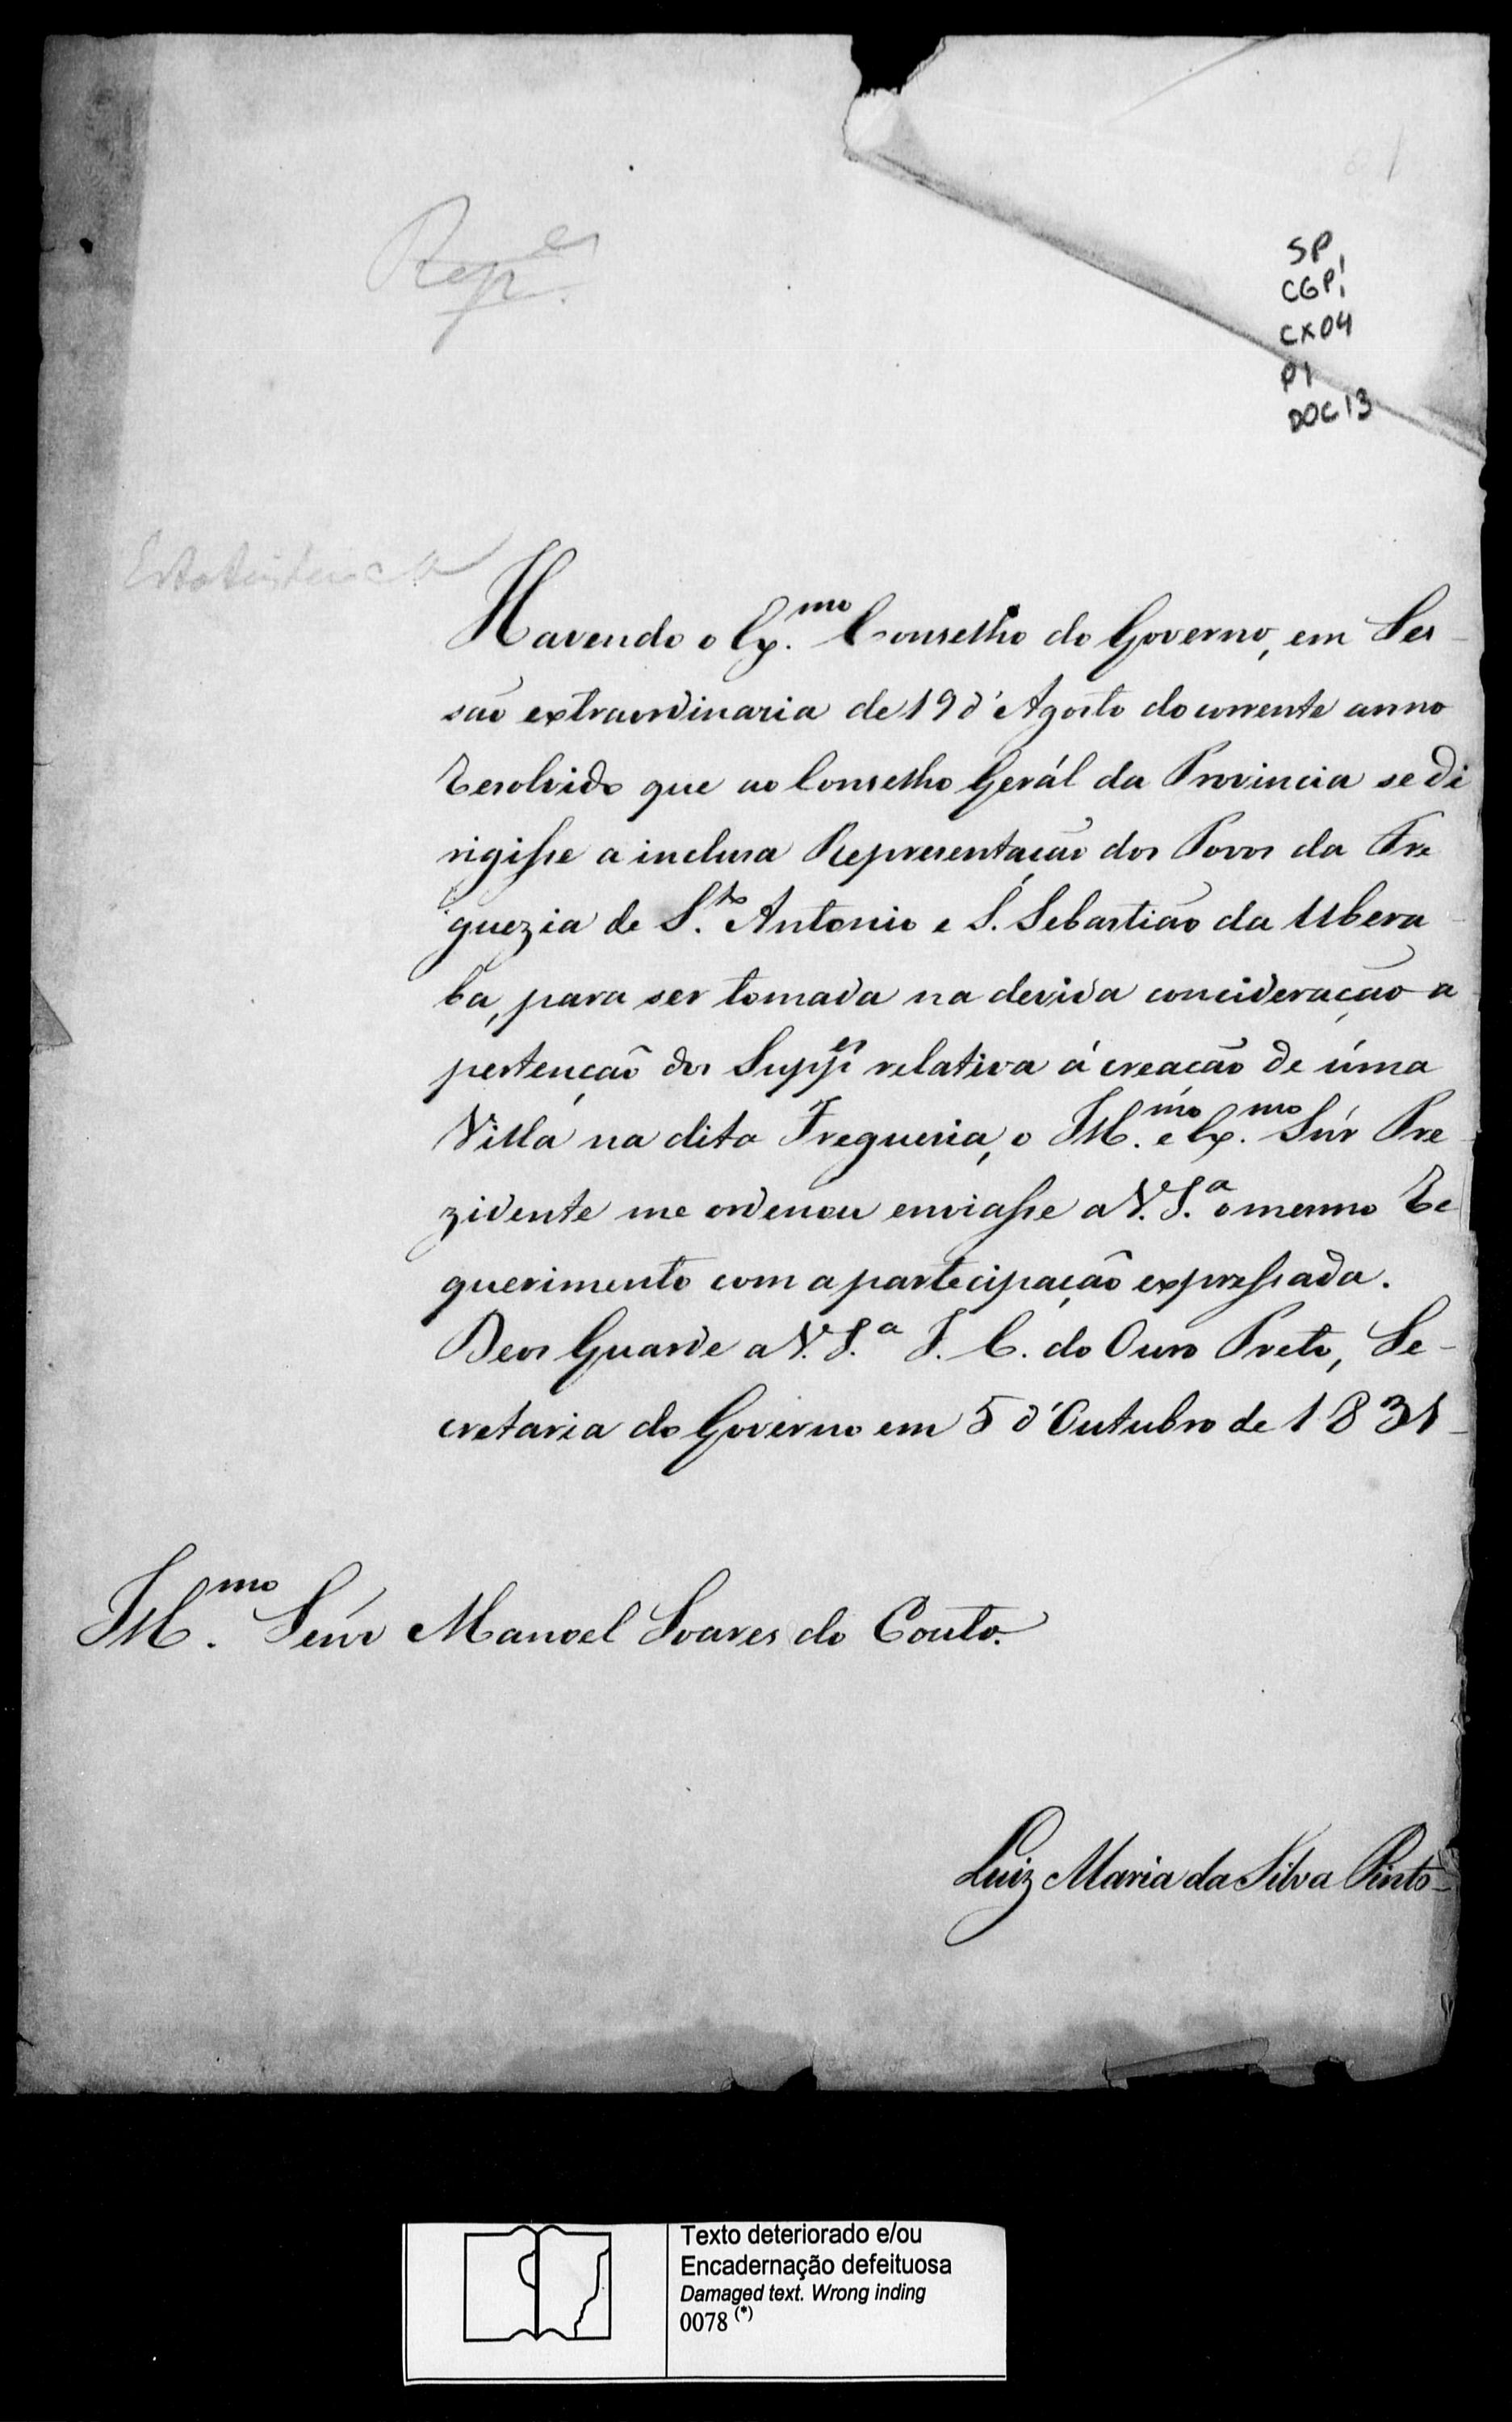 Rep.es
SP,
CGP!
CX04
P1
DOC13
Estatistica
Havendo o Ex.mo Conselho do Governo, em Ses-
são extraordinaria de 19 d'Agosto do corrente anno
Resolvido que ao Conselho Gerál da Provincia se di
rigisse a inclusa Representação dos Povos da Fre
guezia de S.to Antonio e S. Sebastião da Ubera-
ba, para ser tomada na devida concideração a
pertenção dos Supp.es relativa á creação de úma
Villa na dita Freguesia, o Ill.mo e Ex.mo Snr Pre-
zidente me ordenou enviasse a V. S.a o mesmo Re
querimento com a partecipação expressada.
Deos Guarde a V. S.a I. C. do Ouro Preto, Se-
cretaria do Governo em 5 d'Outubro de 1831-
Ill.mo Senr Manoel Soares do Couto.
Luiz Maria da Silva Pinto-
Texto deteriorado e/ou
Encadernação defeituosa
Damaged text. Wrong inding
0078 (*)